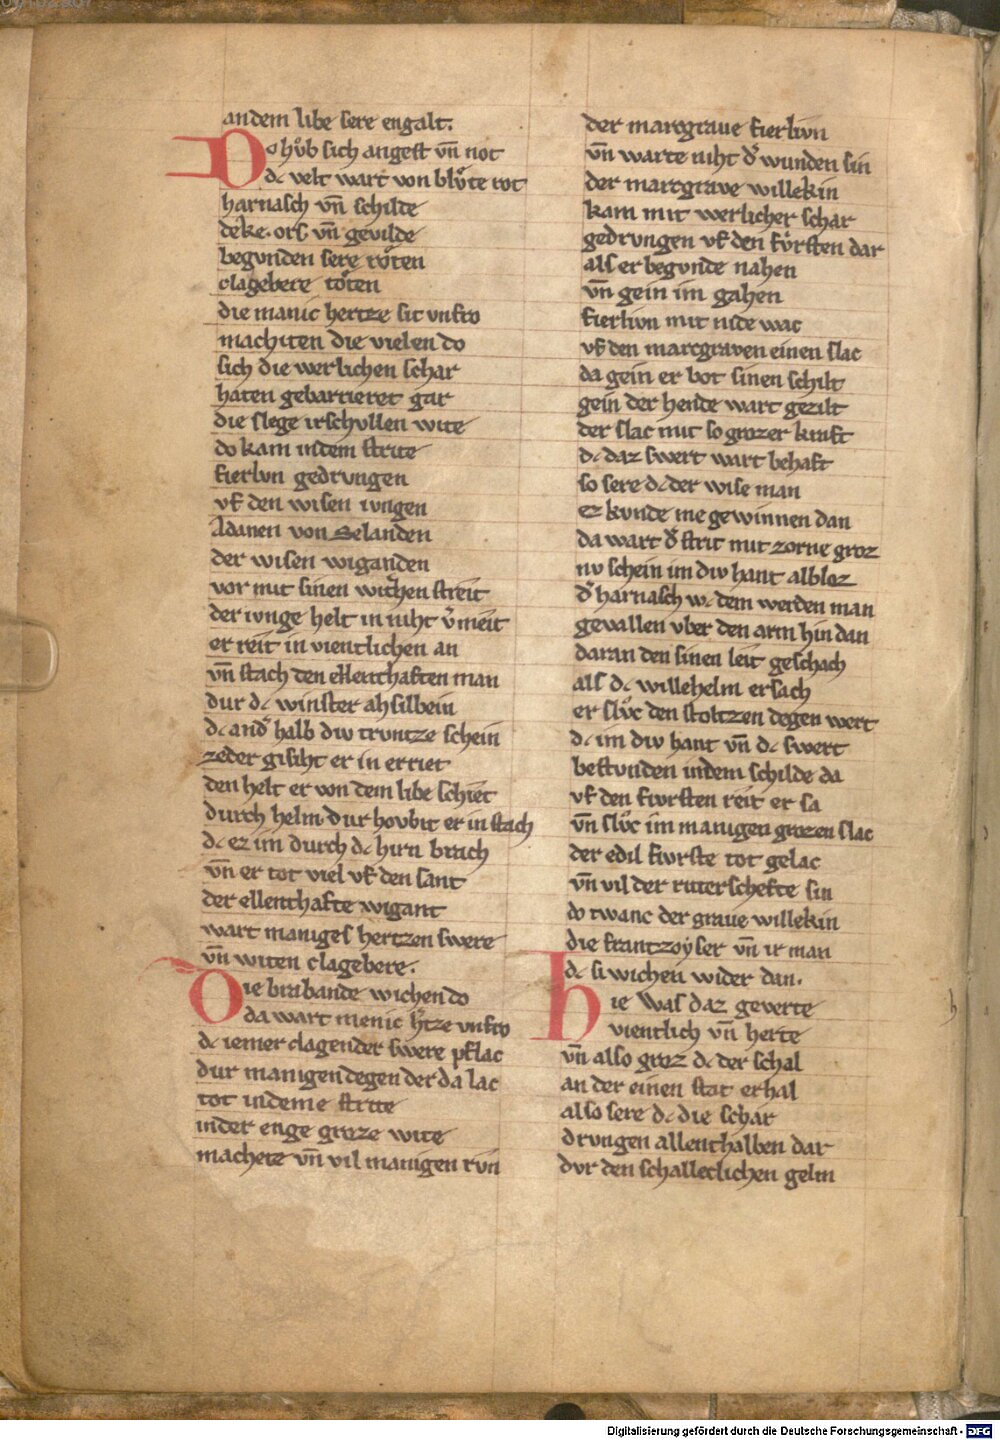 an dem libe sere engalt.
Do hůb sich angest vn̄ not
dc velt wart von blůte rot
harnasch vn̄ schilte
deke. ors vn̄ gevilde
begvnden sere rôten
clagebere tôten
die manic hertze sit vnfro
machten die vielen do
sich die werlichen schar
haten gebartieret gar
die slege irschvllen wite
do kam indem strite
fierlvn gedrvngen
vf den wisen ivngen
Adanen von Selanden
der wisen wiganden
vor mit sinen withen streit
der ivnge helt in niht v͛meit
er reit in vientlichen an
vn̄ stach den ellenthaften man
dur dc winster ahsilbein
dc and͛ halb div trvntze schein
zeder gisiht er in erriet
den helt er von dem libe schiet
durch helm dur hovbit er in stach
dc ez im durch dc hirn brach
vn̄ er tot viel vf den sant
der ellenthafte wigant
wart maniges hertzen swere
vn̄ witen clagebere.
Die brabande wichen do
da wart menic h͛tze vnfro
dc iemer clagender swere pflac
dur manigen degen der da lac
tot indeme strite
inder enge groze wite
machete vn̄ vil manigen rvn
der marcgraue fierlivn
vn̄ warte niht d͛ wunden sin
der marcgrave willekin
kam mit werlicher schar
gedrvngen vf den fv̊rsten dar
als er begvnde nahen
vn̄ gein im gahen
fierlivn mit nide wac
vf den marcgraven einen slac
da gein er bot sinen schilt
gein der hende wart gezilt
der slac mit so grozer kraft
dc daz swert wart behaft
so sere dc der wise man
ez kvnde nie gewinnen dan
da wart d͛ strit mit zorne groz
nv schein im div hant albloz
d͛ harnasch wc dem werden man
gevallen vber den arm hin dan
daran den sinen leit geschach
als dc willehelm ersach
er slůc den stoltzen degen wert
dc im div hant vn̄ dc swert
bestvnden indem schilde da
vf den fivrsten reit er sa
vn̄ slůc im manigen grozen slac
der edil fivrste tot gelac
vn̄ vil der ritterschefte sin
do twanc der graue willekin
die frantzoyser vn̄ ir man
dc si wichen wider dan.
hie was daz geverte
vientlich vn̄ herte
vn̄ also groz dc der schal
an der einen stat erhal
also sere dc die schar
drvngen allenthalben dar
dvr den schalleclichen gelm
h
Digitalisierung gefördert durch die Deutsche Forschungsgemeinschaft - DFG